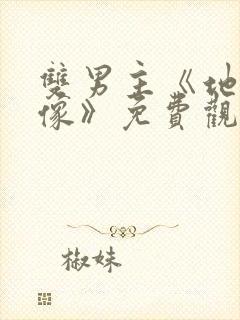 雙男主《地
像》免費觀
椒妹